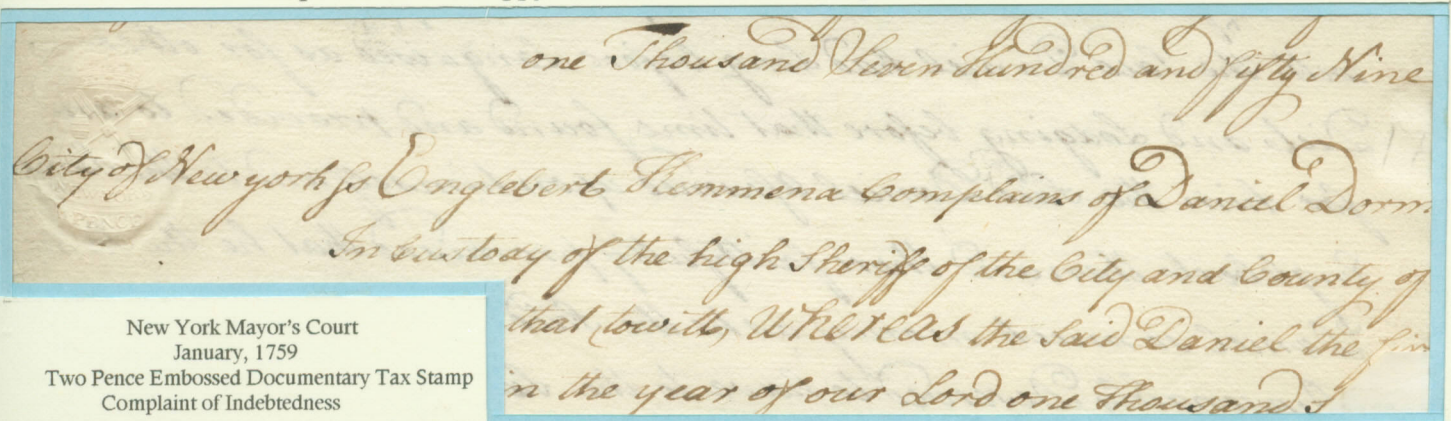 one Thousand Seven Hundred and fifty Nine
City of New york ss Englebert Kemmena Complains of Daniel Dorm
In Custody of the high Sheriff of the City and County of
that towitt, Whereas the Said Daniel the firs
in the year of our Lord one Thousand S
PENCE
New York Mayor's Court
January, 1759
Two Pence Embossed Documentary Tax Stamp
Complaint of Indebtedness